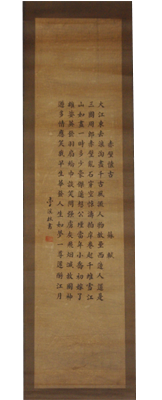 赤壁懷古 蘇軾
大江東去浪淘盡千古風流人物故壘西邊人道是
三國周郎赤壁亂石穿空驚濤拍岸卷起千堆雪江
山如畫一時多少豪傑遙想公瑾當年小喬初嫁了
雄姿英發羽扇綸巾談笑間強虜灰飛煙滅故國神
遊多情應笑我早生華髮人生如夢一尊還酹江月